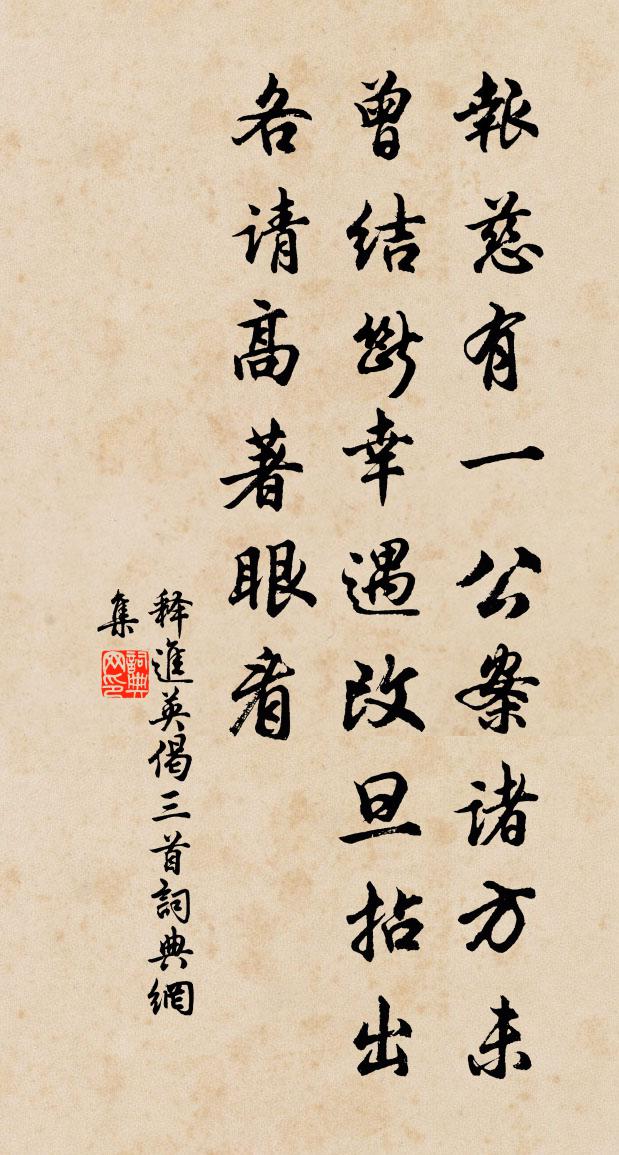 報慈有一公案诸方未
曾结斷幸遇改旦拈出
各请高著眼看
释進英偈三首詞典網
集
詞典
网印